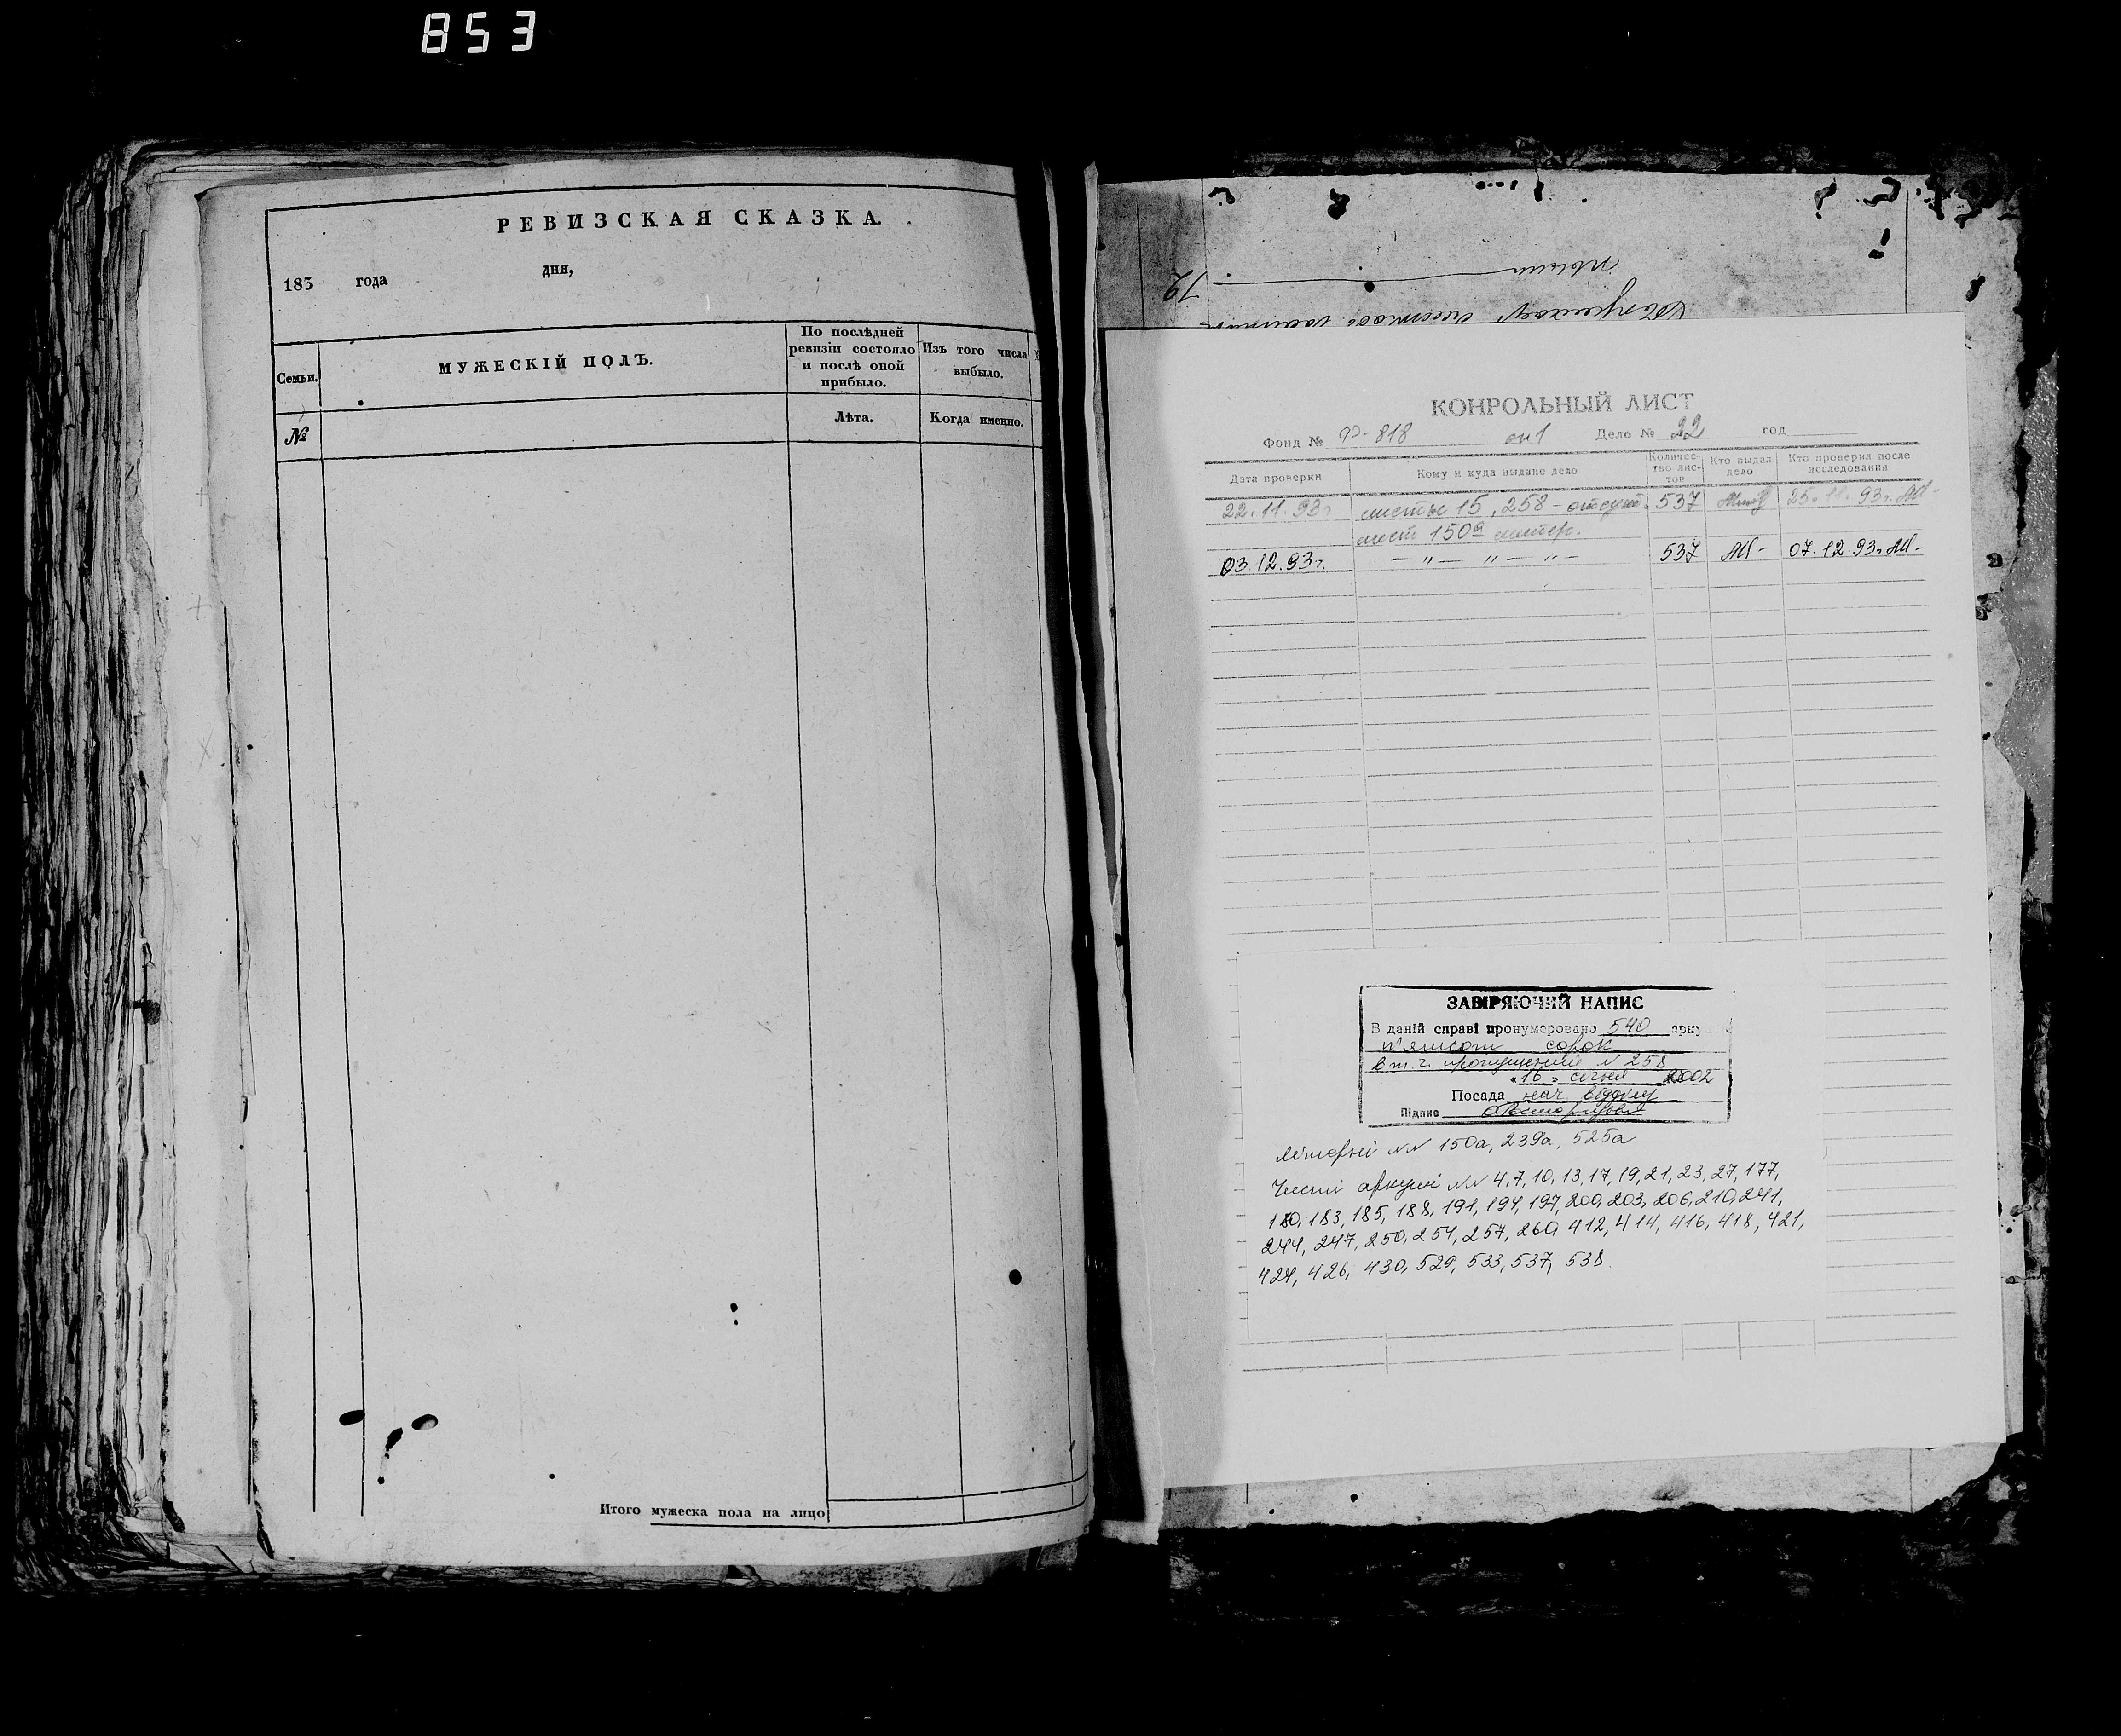 853
РЕВИЗСКАЯ СКАЗКА.
183 года дня,
Семьи.
МУЖЕСКІЙ ПОЛЪ.
По послѣдней ревизіи состояло и послѣ оной прибыло.
Изъ того числа выбыло.
№
Лѣта.
Когда именно.
Итого мужеска пола на лицо
19
КОНРОЛЬНЫЙ ЛИСТ
Фонд № Ф-818 оп1 Дело № 22 год
Дата проверки
Кому и куда выдано дело
Количество листов
Кто выдал дело
Кто проверил после исследования
22.11.93г листы 15, 258 - отсутст. 537 25.11.93г.
лист 150а литер.
03.12.93г. — " — " — " — 537 07.12.93г.
ЗАВІРЯЮЧИЙ НАПИС
В даній справі пронумеровано 540 арку
п'ятсот сорок
в т.ч. пропущений N 258
"16" січня 2002
Посада нач. відділу
Підпис
Літерні NN 150а, 239а, 525а
Чисті аркуші NN 4,7,10,13,17,19,21,23,27,177,
180,183,185,188,191,194,197,200,203,206,210,241,
244, 247, 250,254,257,260 412,414,416,418,421,
424, 426, 430,529,533,537,538.